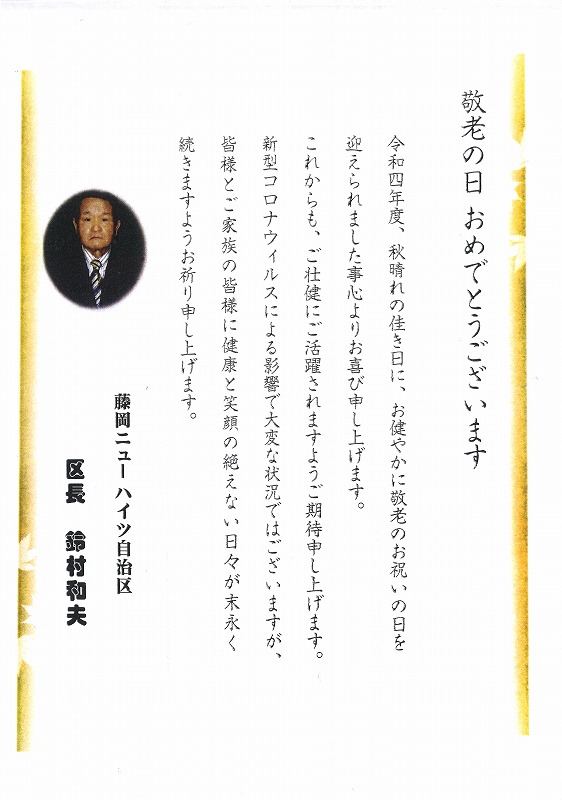 敬老の日 おめでとうございます
令和四年度、秋晴れの佳き日に、お健やかに敬老のお祝いの日を
迎えられました事心よりお喜び申し上げます。
これからも、ご壮健にご活躍されますようご期待申し上げます。
新型コロナウィルスによる影響で大変な状況ではございますが、
皆様とご家族の皆様に健康と笑顔の絶えない日々が末永く
続きますようお祈り申し上げます。
藤岡ニューハイツ自治区
区長 鈴村和夫